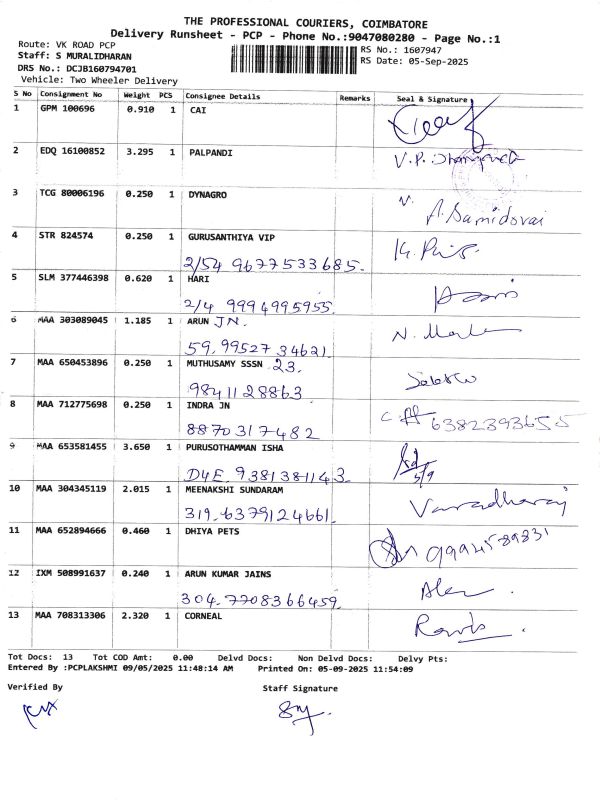 THE PROFESSIONAL COURIERS, COIMBATORE
Delivery Runsheet - PCP - Phone No.:9047080280 - Page No.:1
Route: VK ROAD PCP
RS No.: 1607947
Staff: S MURALIDHARAN
RS Date: 05-Sep-2025
DRS No.: DCJB160794701
Vehicle: Two Wheeler Delivery
S No Consignment No Weight PCS Consignee Details Remarks Seal & Signature
1 GPM 100696 0.910 1 CAI
2 EDQ 16100852 3.295 1 PALPANDI V.P.
3 TCG 80006196 0.250 1 DYNAGRO
A. Samidovai
4 STR 824574 0.250 1 GURUSANTHIYA VIP
2/54 9677533685.
5 SLM 377446398 0.620 1 HARI
2/4 9994995955.
6 MAA 303089045 1.185 1 ARUN JN.
59. 99527 34621
7 MAA 650453896 0.250 1 MUTHUSAMY SSSN 23.
9841128863
8 MAA 712775698 0.250 1 INDRA JN
8870317482
9 MAA 653581455 3.650 1 PURUSOTHAMMAN ISHA
5/9
D4E. 9381381143.
10 MAA 304345119 2.015 1 MEENAKSHI SUNDARAM
319. 6379124661.
Varadharaj
11 MAA 652894666 0.460 1 DHIYA PETS
9994589831
12 IXM 508991637 0.240 1 ARUN KUMAR JAINS
304. 7708366459.
13 MAA 708313306 2.320 1 CORNEAL
Tot Docs: 13 Tot COD Amt: 0.00 Delvd Docs: Non Delvd Docs: Delvy Pts:
Entered By :PCPLAKSHMI 09/05/2025 11:48:14 AM Printed On: 05-09-2025 11:54:09
Verified By Staff Signature